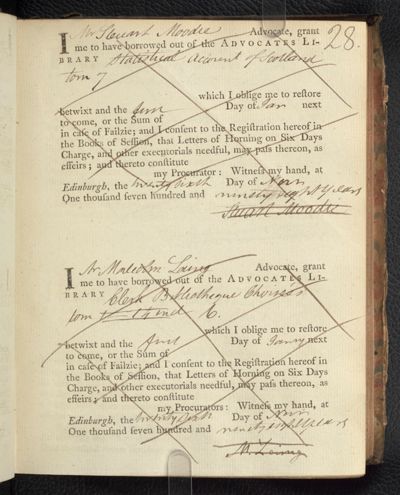 28.
I Mr Steuart Moodie Advocate, grant
me to have borrowed out of the ADVOCATES LI-
BRARY Statistical Account of Scotland
tom 7
which I oblige me to reſtore
betwixt and the first Day of Jan next
to come, or the Sum of
in caſe of Failzie; and I conſent to the Regiſtration hereof in
the Books of Seſſion, that Letters of Horning on Six Days
Charge, and other executorials needful, may paſs thereon, as
effeirs; and thereto conſtitute
my Procurator: Witneſs my hand, at
Edinburgh, the twenty sixth Day of Novr
One thouſand ſeven hundred and ninety eight Years
Steuart Moodie
I Mr Malcolm Laing Advocate, grant
me to have borrowed out of the ADVOCATES LI-
BRARY Clerk Bibliotheque Choisie
tom 6.
which I oblige me to reſtore
betwixt and the first Day of Janry next
to come, or the Sum of
in caſe of Failzie; and I conſent to the Regiſtration hereof in
the Books of Seſſion, that Letters of Horning on Six Days
Charge, and other executorials needful, may paſs thereon, as
effeirs; and thereto conſtitute
my Procurators: Witneſs my hand, at
Edinburgh, the Day of Novr
One thouſand ſeven hundred and Years
M. Laing